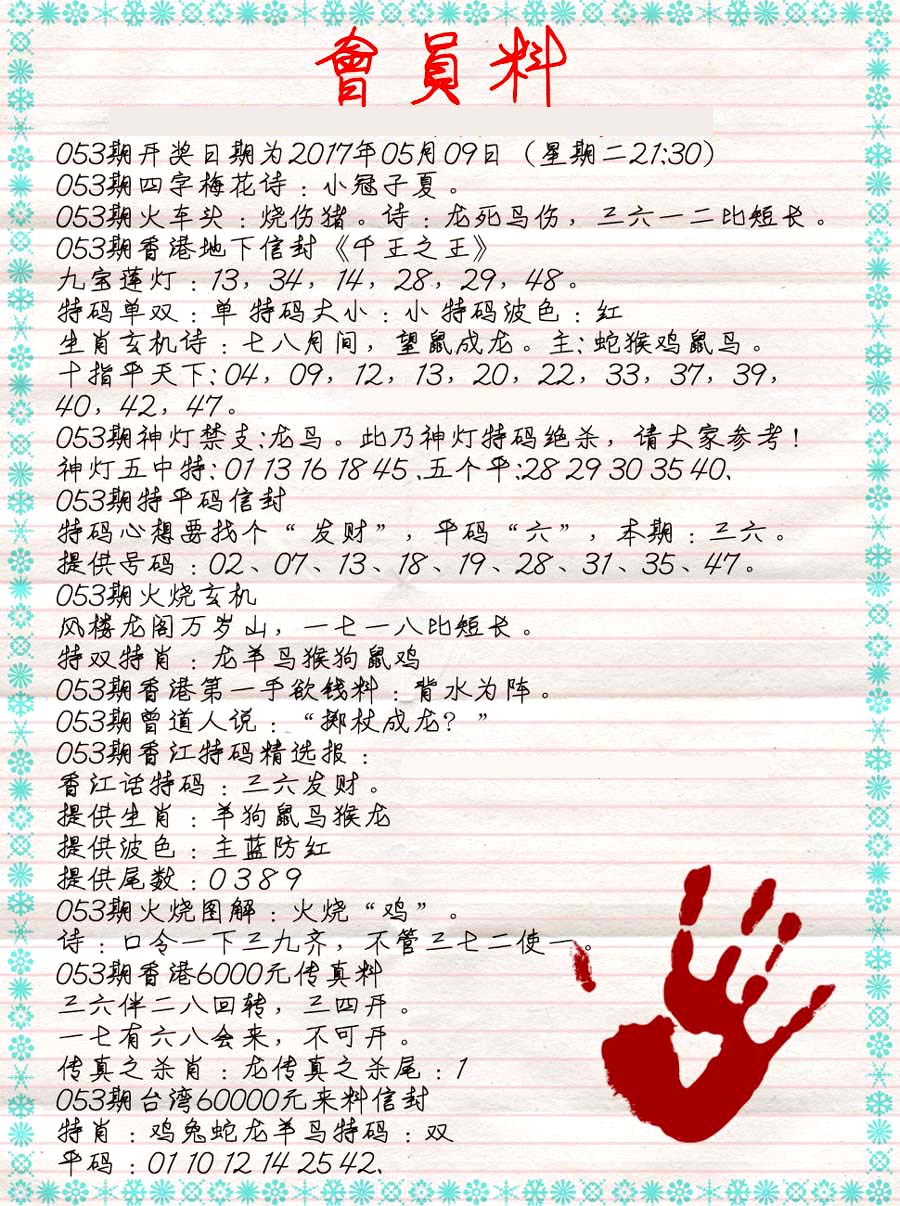 會員料
053期开奖日期为2017年05月09日（星期二21:30）
053期四字梅花诗：小冠子夏。
053期火车头：烧伤猪。诗：龙死鸟伤，三六一二比短长。
053期香港地下信封《千王之王》
九宝莲灯：13，34，14，28，29，48。
特码单双：单 特码大小：小 特码波色：红
生肖玄机诗：七八月间，望鼠成龙。主：蛇猴鸡鼠马。
十指平天下：04，09，12，13，20，22，33，37，39，
40，42，47。
053期神灯禁支:龙马。此乃神灯特码绝杀，请大家参考！
神灯五中特：01 13 16 18 45 、五个平:28 29 30 35 40、
053期特平码信封
特码心想要找个“ 发财”，平码“六”，本期：三六。
提供号码：02、07、13、18、19、28、31、35、47。
053期火烧玄机
风楼龙阁万岁山，一七一八比短长。
特双特肖：龙羊马猴狗鼠鸡
053期香港第一手欲钱料：背水为阵。
053期曾道人说：“掷杖成龙？”
053期香江特码精选报：
香江话特码：三六发财。
提供生肖：羊狗鼠马猴龙
提供波色：主蓝防红
提供尾数：0 3 8 9
053期火烧图解：火烧“鸡”。
诗：口令一下三九齐，不管三七二使一。
053期香港6000元传真料
三六伴二八回转，三四开。
一七有六八会来，不可开。
传真之杀肖：龙传真之杀尾：1
053期台湾60000元来料信封
特肖：鸡兔蛇龙羊马特码：双
平码：01 10 12 14 25 42、